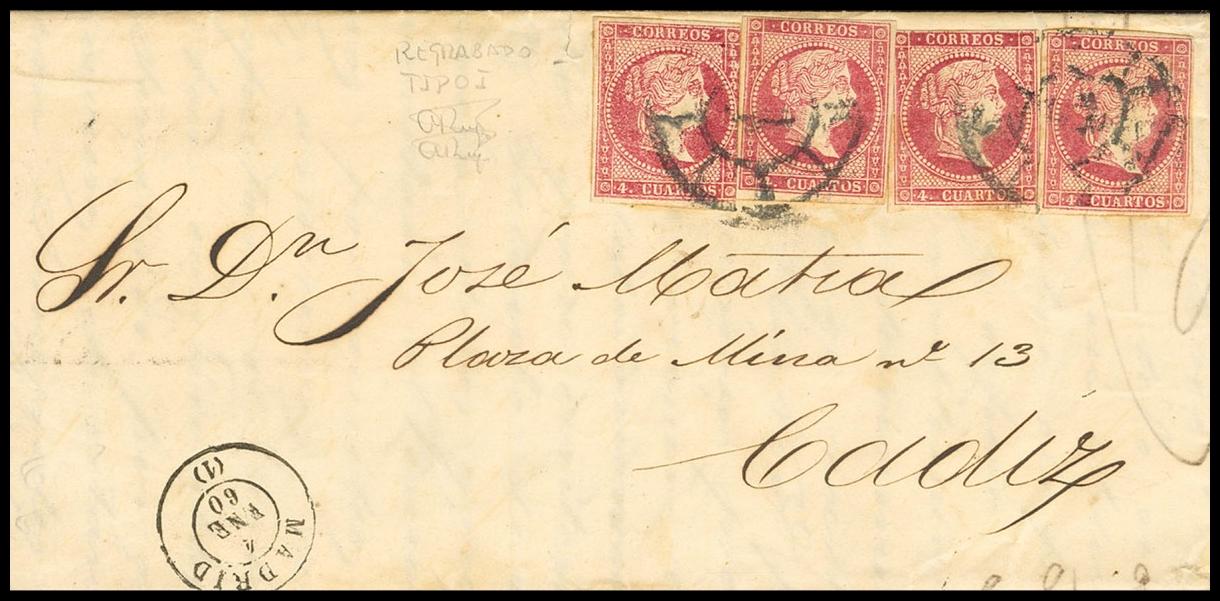 REGRABADO
TIPO I
CORREOS
4. CUARTOS
CORREOS
4. CUARTOS
CORREOS
4. CUARTOS
CORREOS
4. CUARTOS
Sr. Dn. José Matia
Plaza de Mina nº 13
Cadiz
MADRID
4
ENE
60
(1)